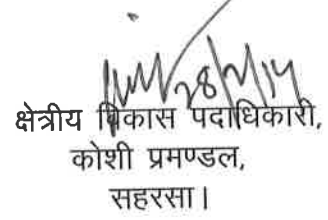 28/2/14
क्षेत्रीय विकास पदाधिकारी,
कोशी प्रमण्डल,
सहरसा।